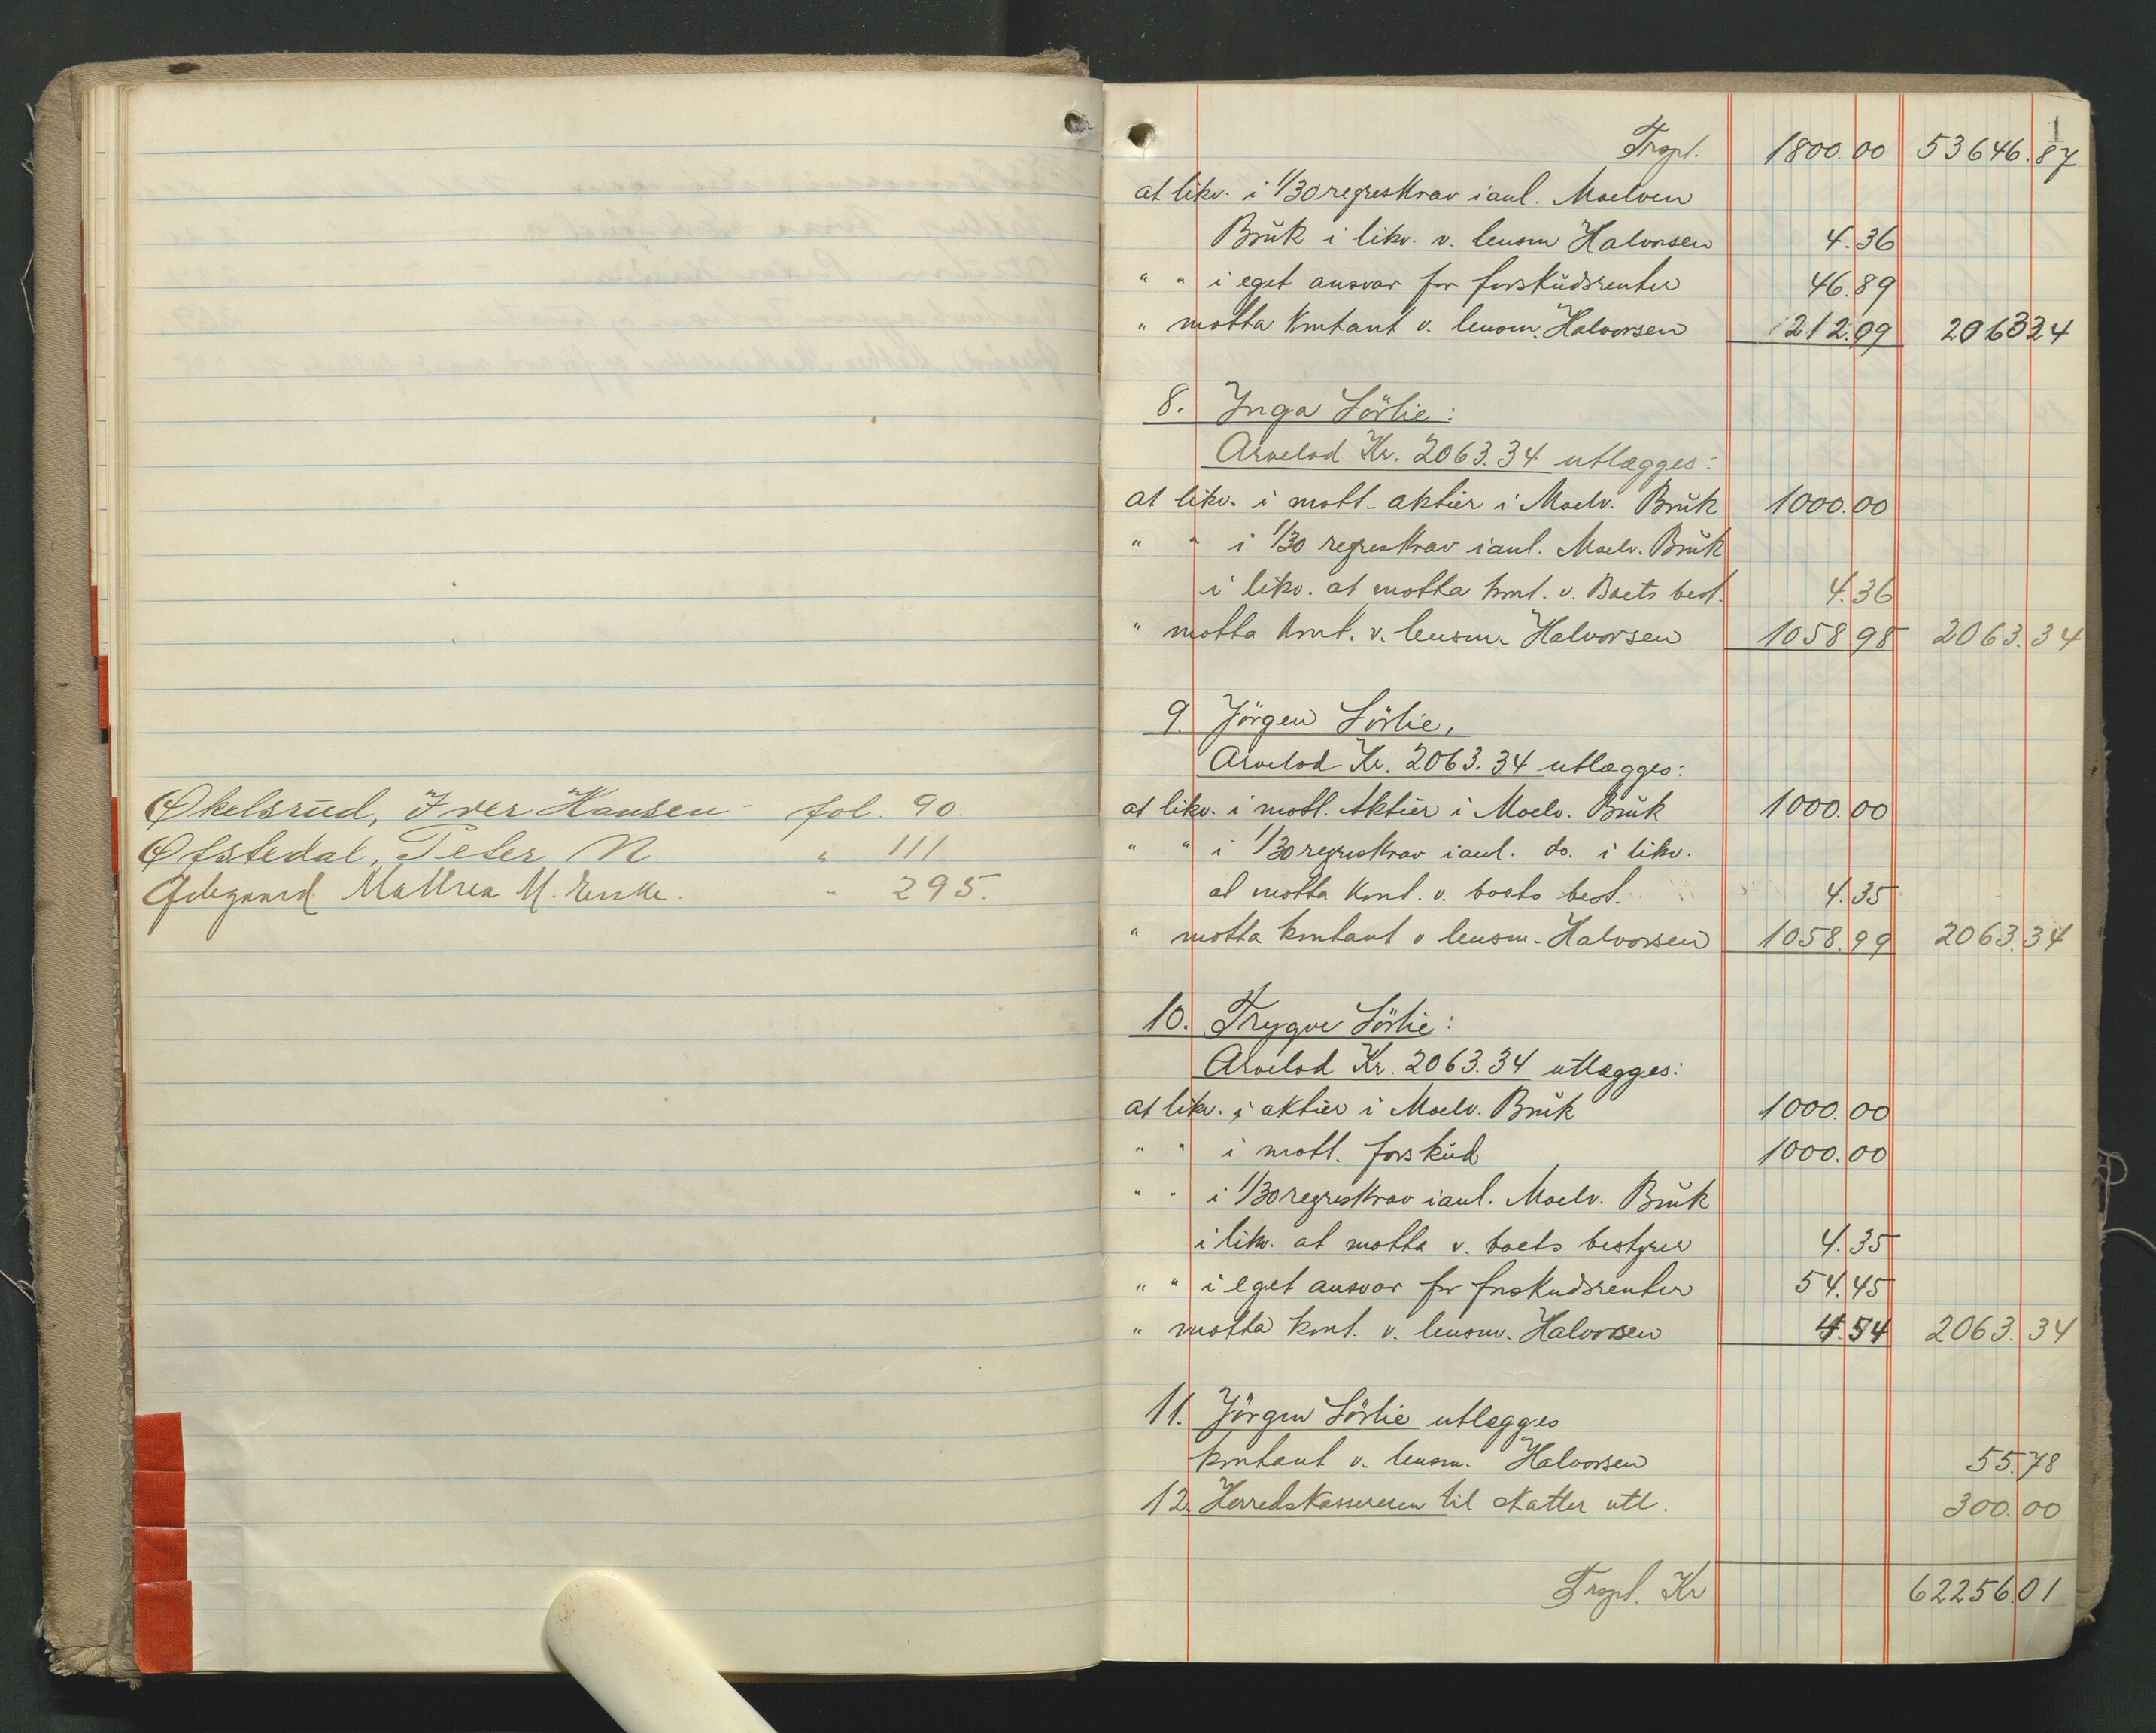 Økelsrud, Iver Hansen - fol. 90.
Øfstedal, Peter N. " 111
Ødegaard Mathea M. Enke. " 295.
1
Trspl. 1800.00 53646.87
at likv. i 1/30 regreskrav i anl. Moelven
Bruk i likv. v. lensm Halvorsen 4.36
" " i eget ansvar for forskudsrenter 46.89
" motta kontant v. lensm. Halvorsen 212.09 2063 34
8. Inga Sörlie:
Arvelod Kr. 2063.34 utlægges:
at likv. i mott. aktier i Moelv. Bruk 1000.00
" " i 1/30 regreskrav i anl. Moelv. Bruk
i likv. at motta kont. v. Boets best. 4.36
" motta kont. v. lensm. Halvorsen 1058 98 2063.34
9. Jörgen Sörlie,
Arvelod Kr. 2063.34 utlægges:
at likv. i mott. Aktier i Moelv. Bruk 1000.00
" " i 1/30 regreskrav i anl. do. i likv.
at motta kont. v. boets best. 4.35
" motta kontant v lensm. Halvorsen 1058.99 2063.34
10. Trygve Sörlie:
Arvelod Kr. 2063.34 utlægges:
at likv. i aktier i Moelv. Bruk 1000.00
" " i mott. forskud 1000.00
" " i 1/30 regreskrav i anl. Moelv. Bruk
i likv. at motta v. boets bestyrer 4.35
" " i eget ansvar for forskudsrenter 54.45
" motta kont. v. lensm. Halvorsen 4.54 2063.34
11. Jörgen Sörlie utlægges
kontant v. lensm. Halvorsen 55.78
12. Herredskassereren til skatter utl. 300.00
Trspl. Kr 62256.01